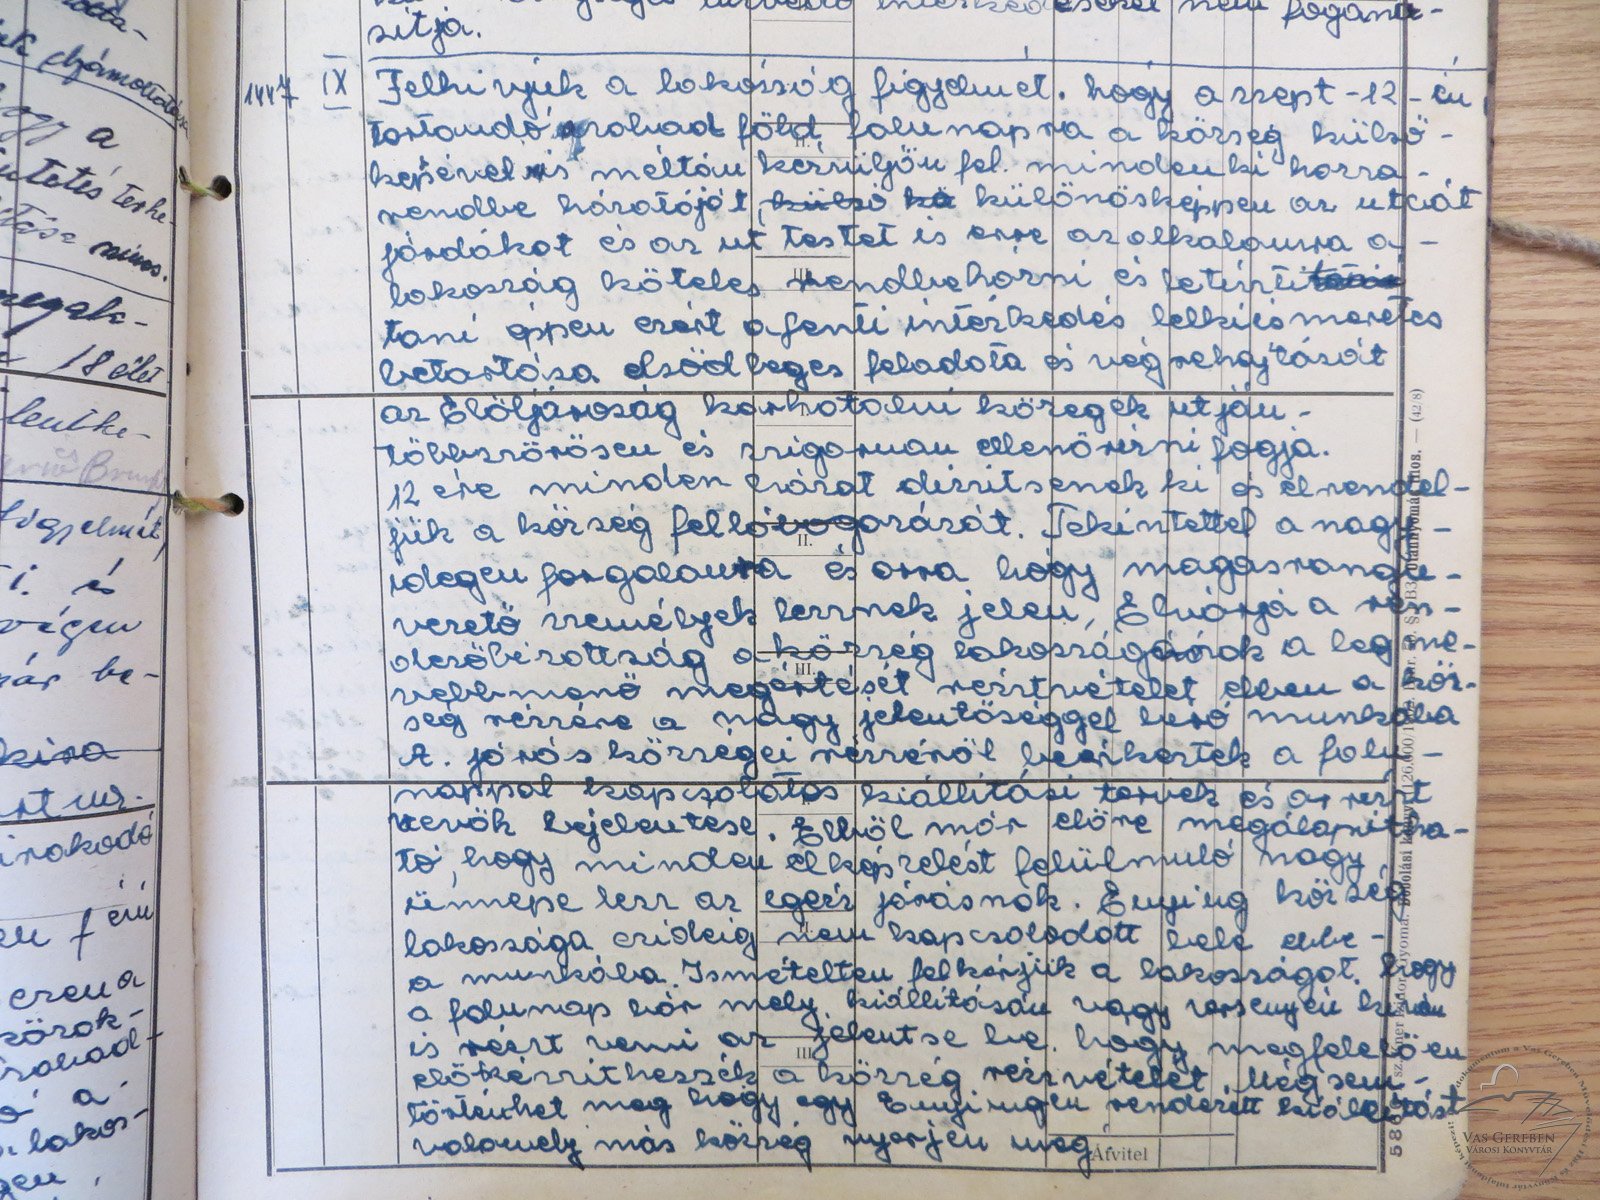 sitja.
1447 IX Felhivjuk a lakosság figyelmét. hogy a szept-12-én
tartandó szabad föld falunapra a község külső-
képével is méltóan készüljön fel. mindenki hozza-
rendbe házatáját, külső kö különösképpen az utcát
járdákat és az ut testet is erre az alkalomra a-
lakosság köteles rendbehozni és letisztit
tani éppen ezért a fenti intézkedés lelkiismeretes
betartása elsődleges feladata és végrehajtását
az Elöljáróság karhatalmi közegek utján-
többszörösen és szigoruan ellenőrizni fogja.
12 ére minden házat diszitsenek ki és elrendel-
jük a község fellobogózását. Tekintettel a nagy-
idegen forgalomra és arra hogy magasrangu-
vezető személyek lesznek jelen, Elvárja a ren-
dezőbizottság a község lakosságának a legme-
szebbmenő megértését részvételét ebben a köz-
ség részére a nagy jelentőséggel biró munkába
A. járás községei részéről beérkeztek a falu-
nappal kapcsolatos kiállitási tervek és a részt
vevők bejelentése. Ebből már előre megálapitha-
tó, hogy minden elképzelést felülmuló nagy
ünnepe lesz az egész járásnak. Enying község
lakossága ezideig nem kapcsolodott bele ebbe-
a munkába. Ismételten felkérjük a lakosságot. hogy
a falunap bár mely kiállitásán vagy versenyén kiván
is részt venni az jelentse be. hogy megfelelően
előkészithessék a község részvételét. Mégsem-
történhet meg hogy egy Enyingen rendezett kiállitást
valamely más község nyerjen meg
Átvitel
II.
III.
II.
III.
III.
hogy a
18 élet
figyelmét,
és
végen
be-
kira
szabad-
a
lakos-
VAS GEREBEN
VÁROSI KÖNYVTÁR